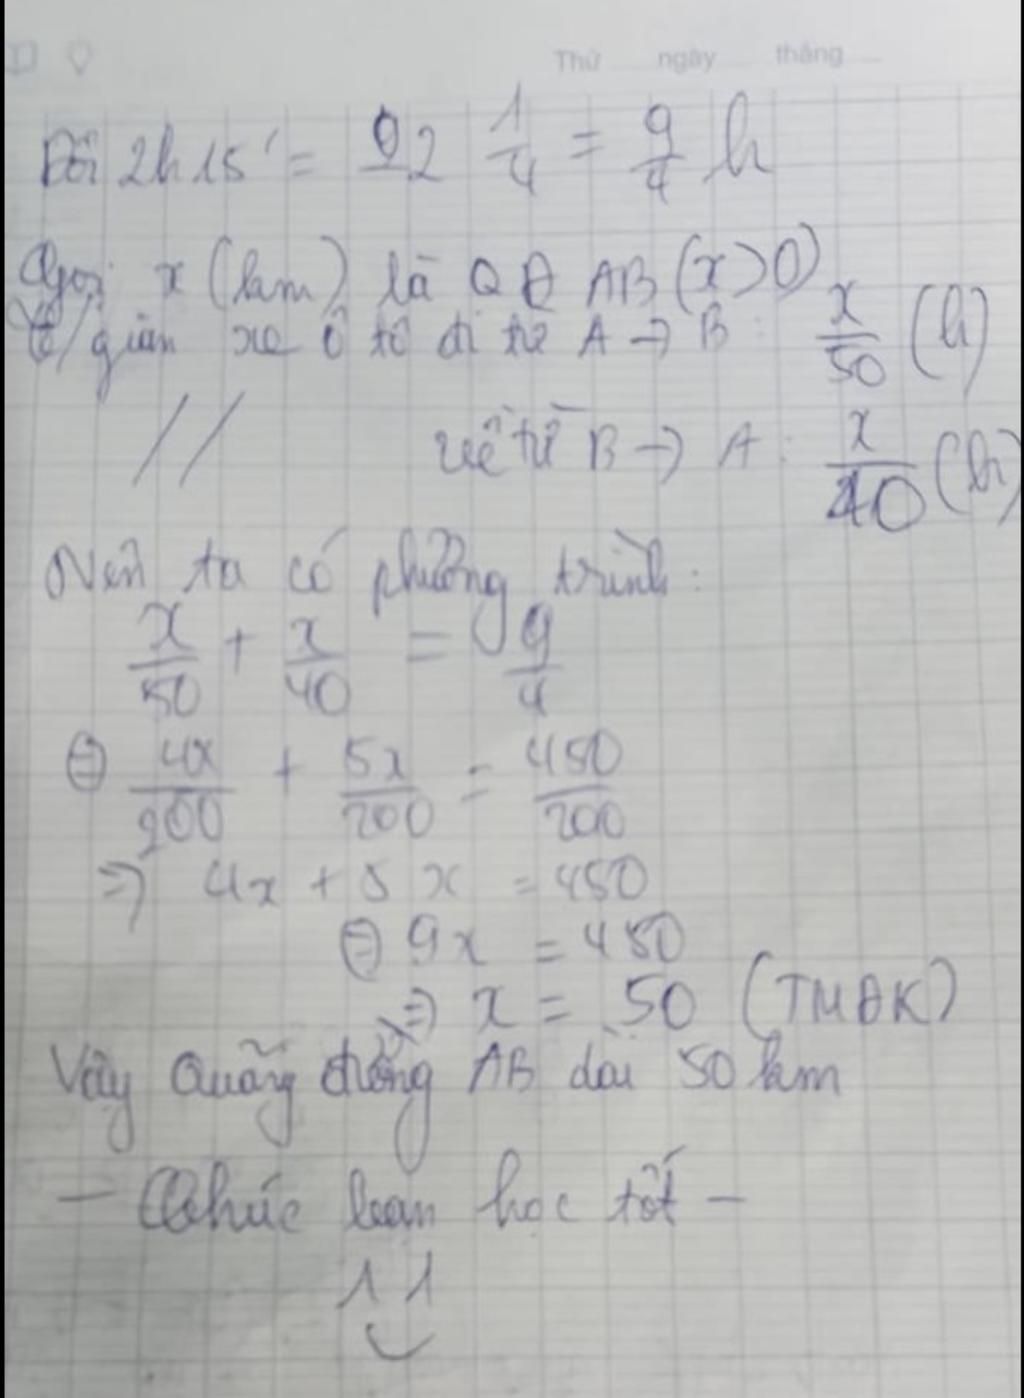 Thứ ngày tháng
Đổi 2h15' = 2 1/4 = 9/4 h
Gọi x (km) là QĐ AB (x>0)
T/gian xe ô tô đi từ A → B : x/50 (h)
// về từ B → A : x/40 (h)
Nên ta có phương trình :
x/50 + x/40 = 9/4
⇔ 4x/200 + 5x/200 = 450/200
⇒ 4x + 5x = 450
⇔ 9x = 450
⇒ x = 50 (TMĐK)
Vậy Quãng đường AB dài 50 km
— Chúc bạn học tốt —